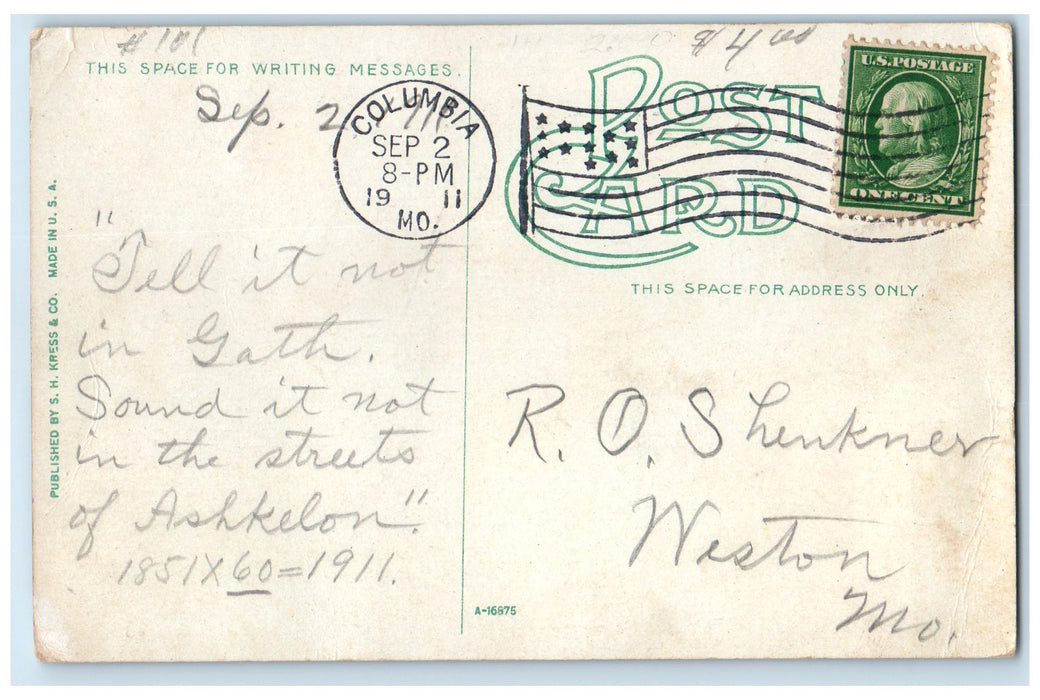 #101
$4.00
THIS SPACE FOR WRITING MESSAGES.
Sep. 2
COLUMBIA
SEP 2
8-PM
19 11
MO.
POST CARD
U.S. POSTAGE
ONE CENT
THIS SPACE FOR ADDRESS ONLY.
"Tell it not
in Gath.
Sound it not
in the streets
of Ashkelon".
1851X60=1911.
PUBLISHED BY S. H. KRESS & CO. MADE IN U. S. A.
R. O. Shenkner
Weston
Mo.
A-16875